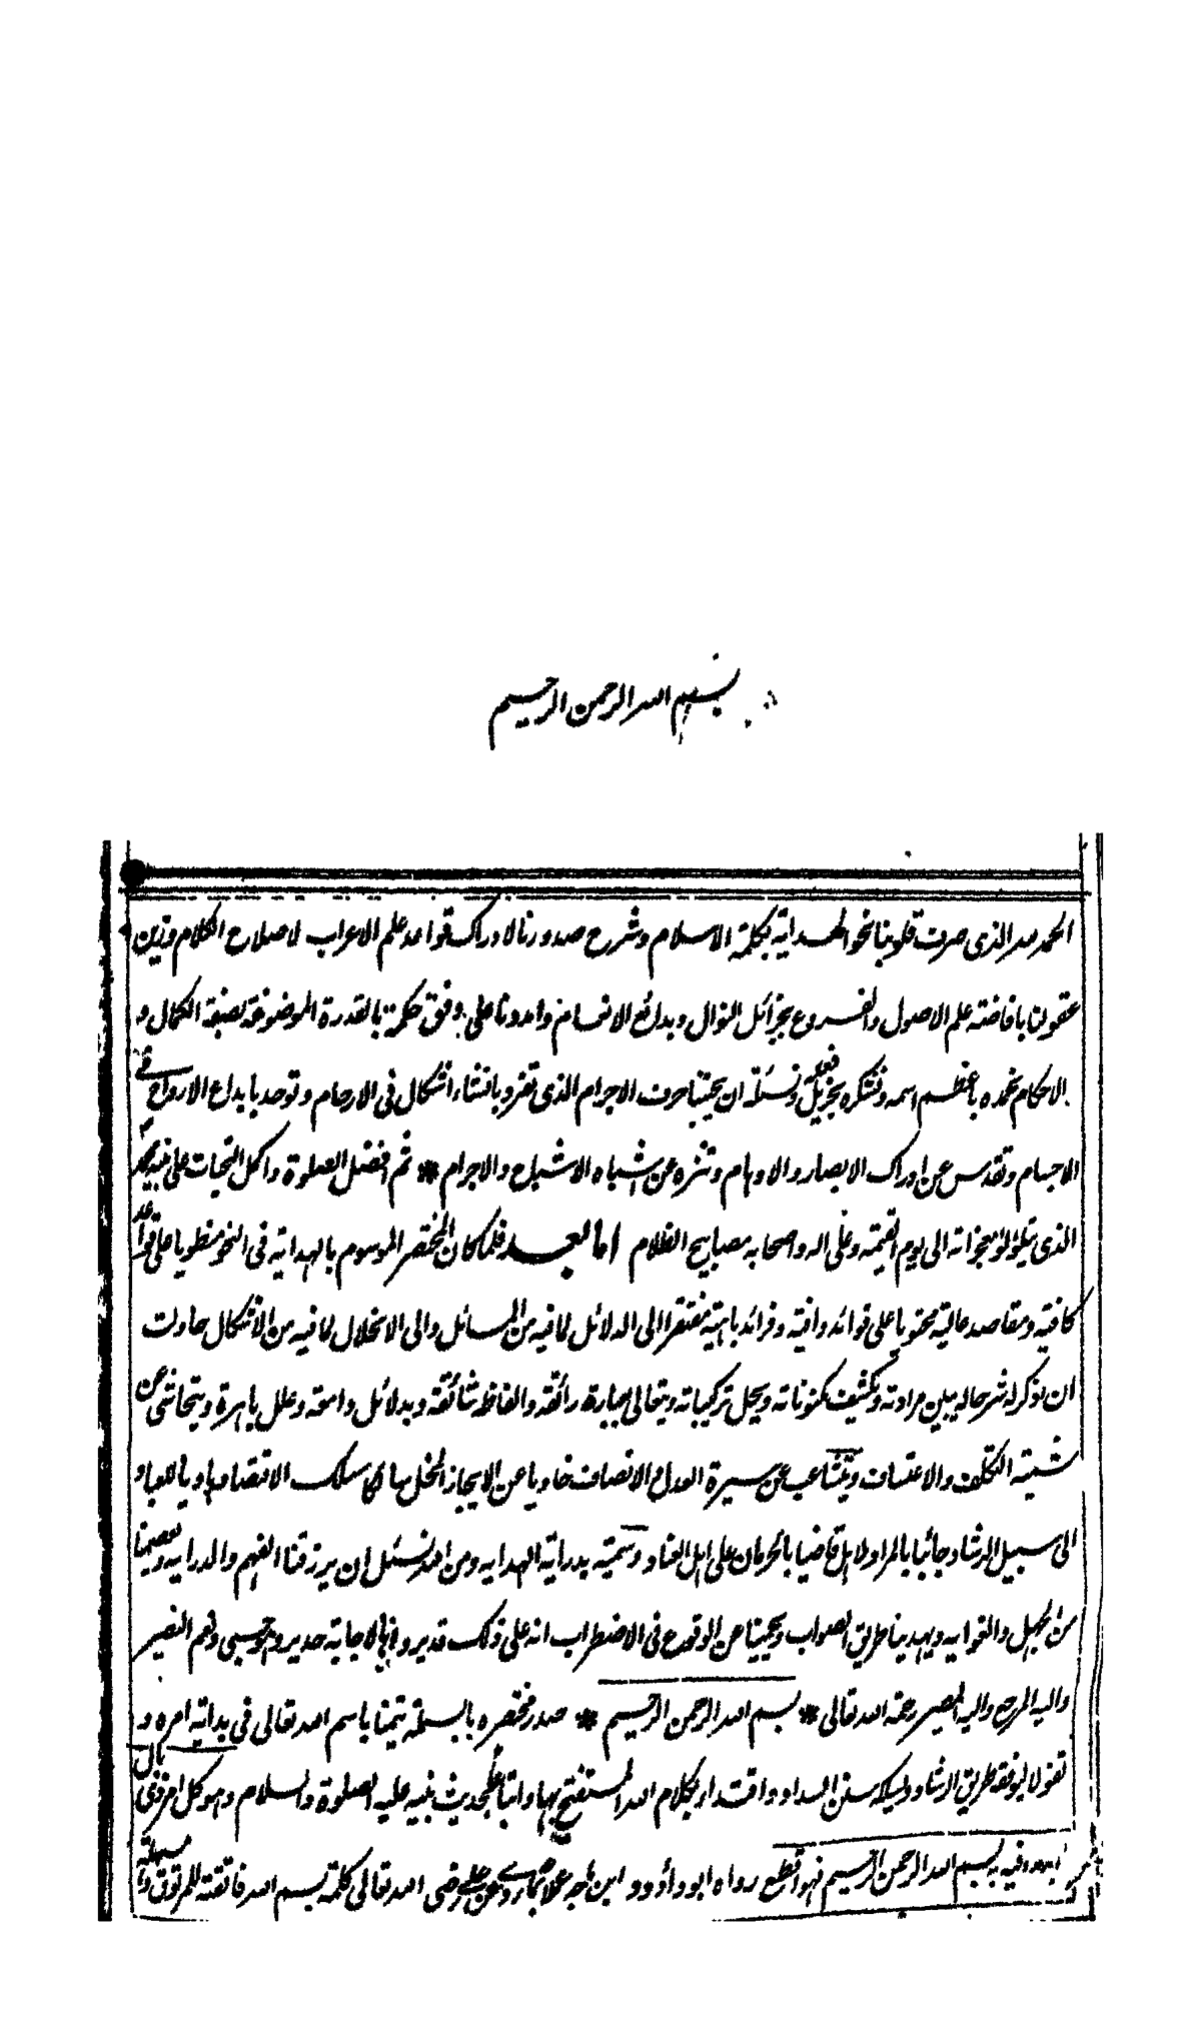 بسم الله الرحمن الرحيم
الحمد لله الذى صرف قلوبنا نحو الهداية بكلمة الاسلام وشرح صدورنا لادراك قواعد علم الاعراب لاصلاح الكلام وزين
عقولنا بافاضته علم الاصول والفروع بجزائل النوال وبدائع الانعام واهدنا على وفق حكمته بالقدرة الموضوعة بصنعة الكمال و
الاحكام نحمده باعظم اسمه ونشكره بجزيل فضله ونسئله ان يجنبنا حرف الاجرام الذى تفرد بانشاء اشكال فى الارحام وتوحد بابداع الارواح فى
الاجسام وتقدس عن ادراك الابصار والاوهام وتنزه عن اشباه الاشباح والاجرام * ثم افضل الصلوة واكمل التحيات على نبيه محمد
الذى تتلؤلؤ معجزاته الى يوم القيمة وعلى اله واصحابه مصابيح الظلام اما بعد فلما كان المختصر الموسوم بالهداية فى النحو منطويا على قواعد
كافية ومقاصد عالية محتويا على فوائد وافية وفرائد باهية مفتقرا الى الدلائل لما فيه من المسائل والى الانحلال لما فيه من الاشكال حاولت
ان نذكر له شرحا له يبين مراداته ويكشف مكنوناته ويحل تركيباته ويتحالى بعبارة رائقة والفاظ شائقة وبدلائل دامغة وعلل باهرة ويتحاشى عن
شيمة التكلف والاعتساف عن سيرة العدل والانصاف خاويا عن الايجاز المخل سالكا مسلك الاقتصاد هاديا للعباد
الى سبيل الرشاد جائبا بالمراد لاهل قاضيا بالحرمان على اهل العناد وسميته بدراية الهداية ومن الله نسئل ان يرزقنا الفهم والدراية ويعصمنا
من الجهل والغواية ويهدينا طريق الصواب ويجنبنا عن الوقوع فى الاضطراب انه على ذلك قدير وانه بالاجابة جدير وهو حسبى ونعم النصير
واليه المرجع واليه المصير رحمة الله تعالى * بسم الله الرحمن الرحيم * صدر مختصره بالبسملة تيمنا باسم الله تعالى فى بداية امره و
تفولا ليوفقه طريق الرشاد ويسلكه سنن السداد واقتداء بكلام الله المستفتح بها واتباعا لحديث نبيه عليه الصلوة والسلام وهو كل امر ذى بال
لم يبدا فيه ببسم الله الرحمن الرحيم فهو اقطع رواه ابو داود وابن ماجه وعن على رضى الله تعالى كلمة بسم الله فاتقة للرتوق